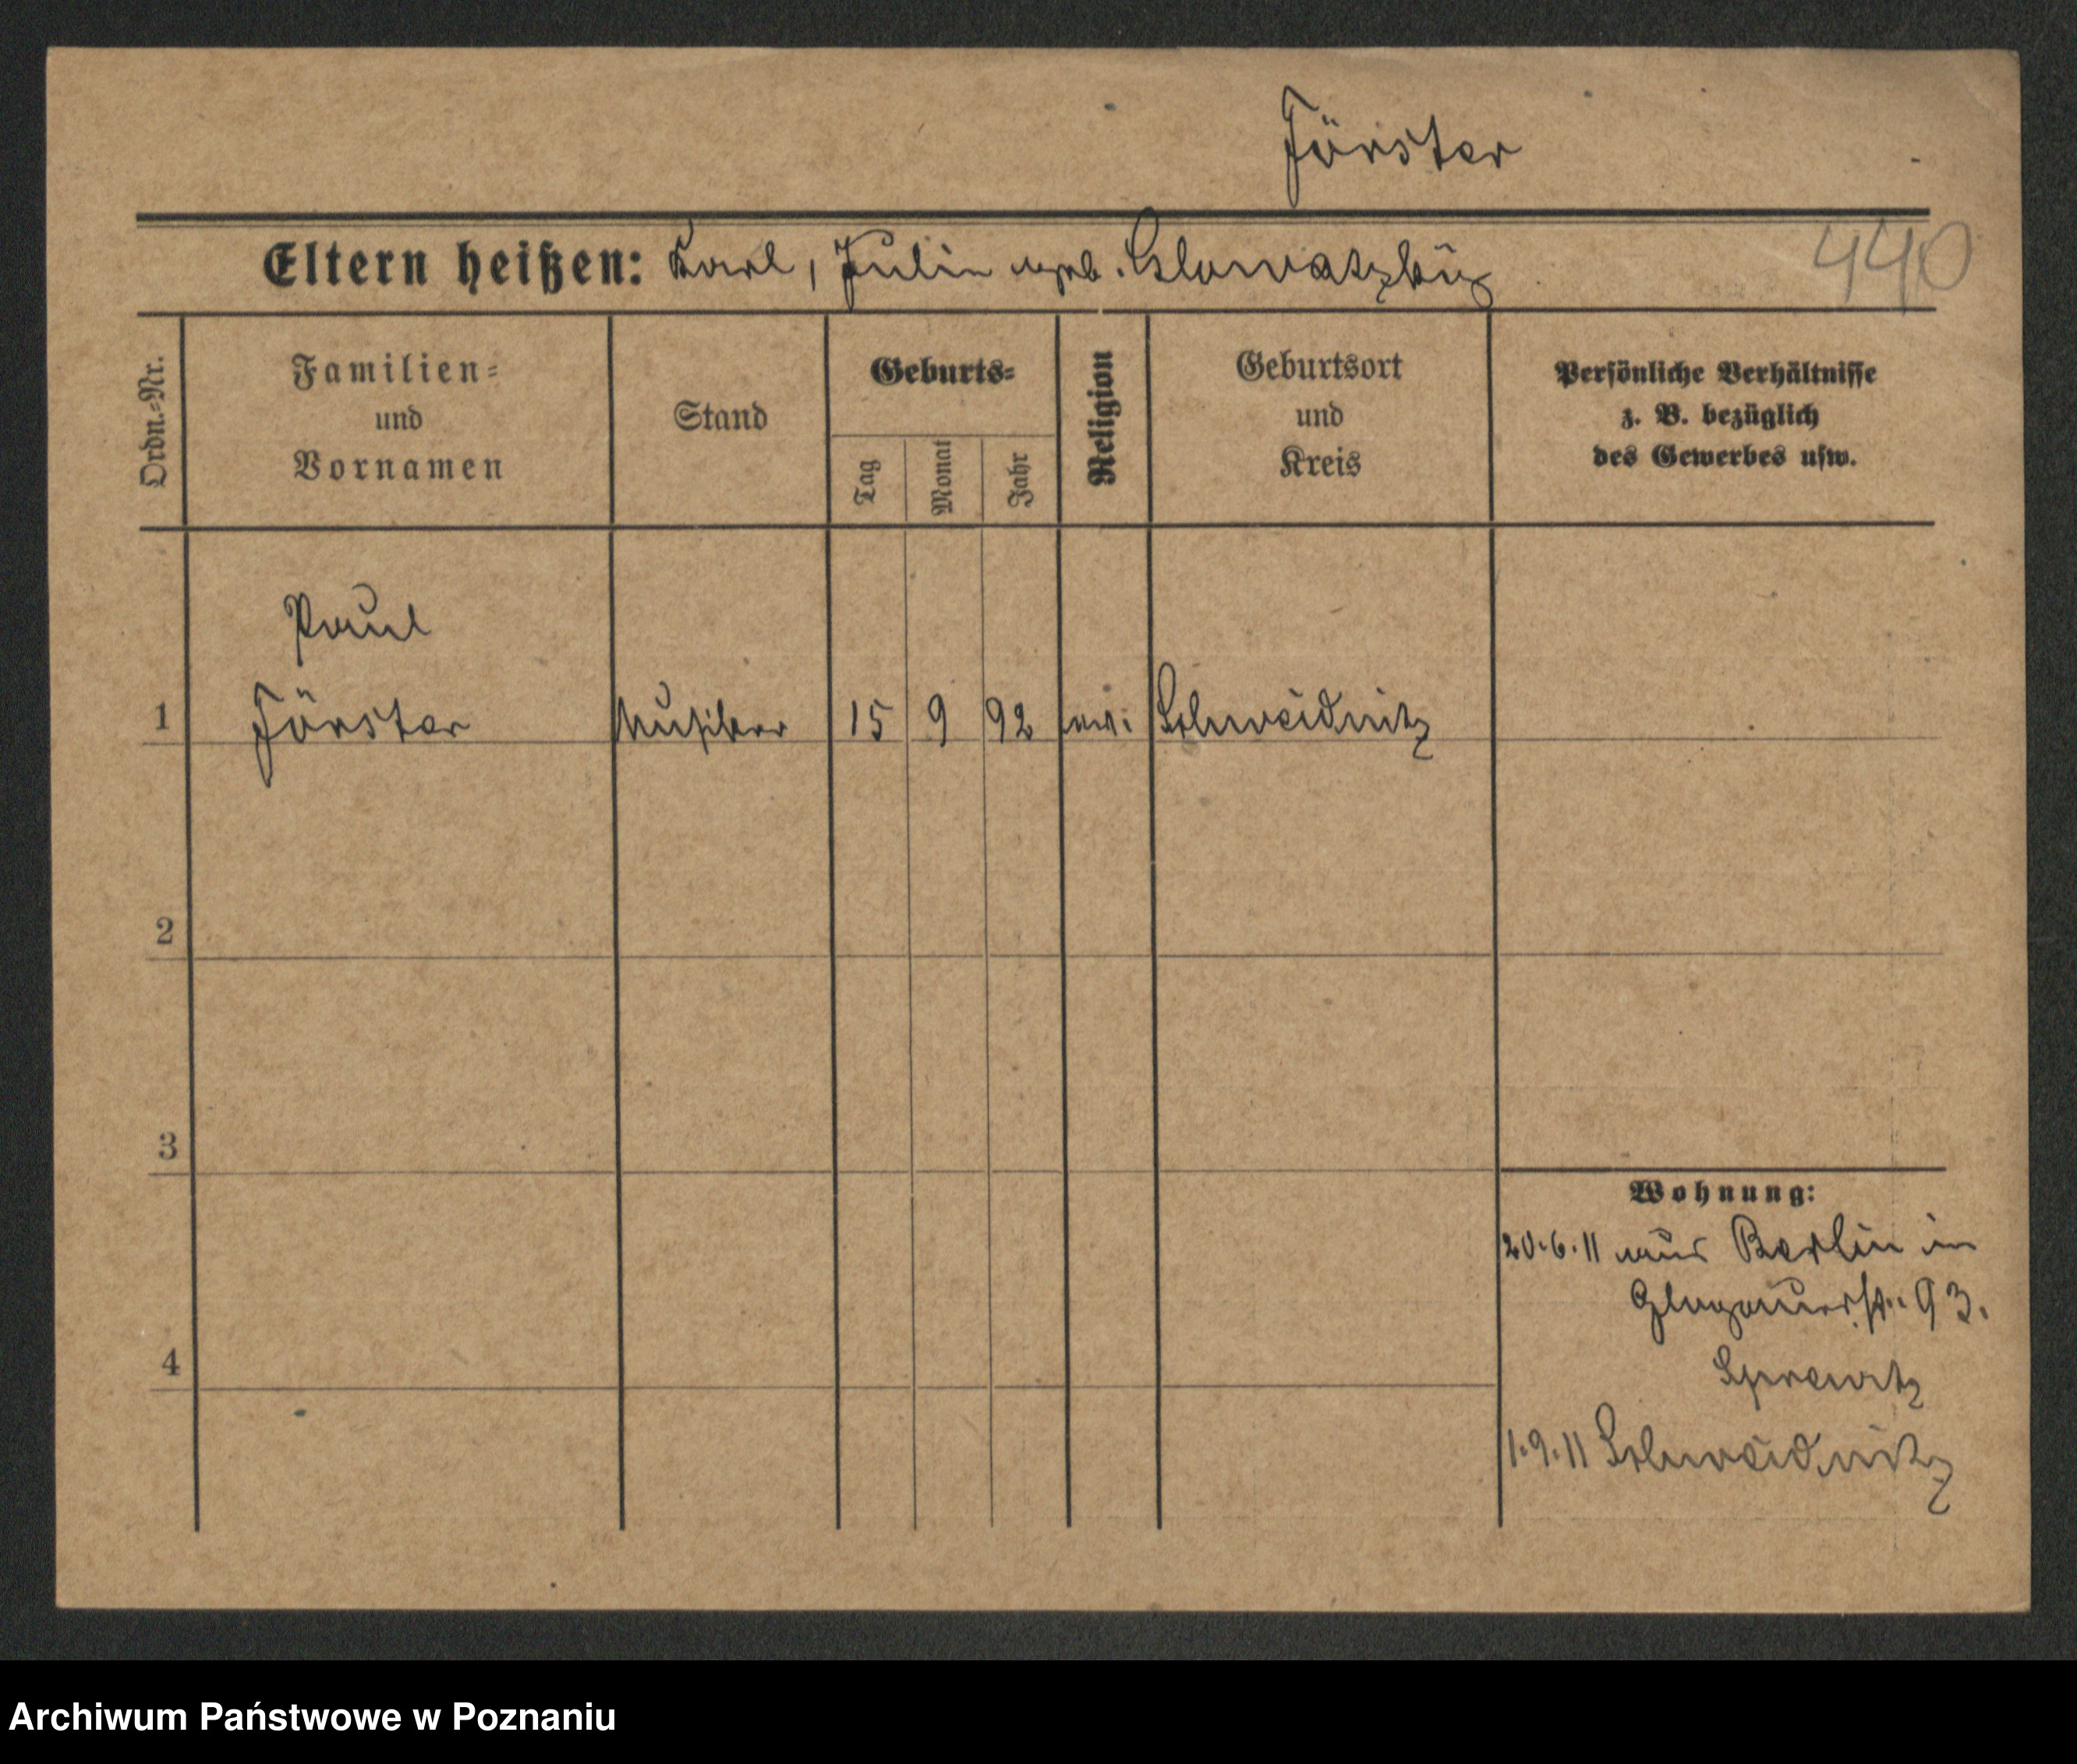 Förster
Eltern heißen: Karl, Julie geb.
440
Ordn.-Nr.
Familien-
und
Vornamen
Stand
Geburts-
Tag
Monat
Jahr
Religion
Geburtsort
und
Kreis
Persönliche Verhältnisse
z. B. bezüglich
des Gewerbes usw.
Paul
1 Förster Musiker 15 9 92 ev. Schweidnitz
2
3
4
Wohnung:
20.6.11 aus Berlin in
Glogauerstr. 93.
1.9.11 Schweidnitz
Archiwum Państwowe w Poznaniu